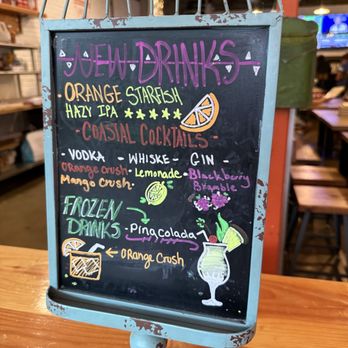 NEW DRINKS
ORANGE STARFISH
HAZY IPA
- COASTAL COCKTAILS -
VODKA - WHISKE - GIN -
Orange crush Lemonade Blackberry
Mango Crush Bramble
FROZEN
DRINKS
- Pina Colada
Orange Crush